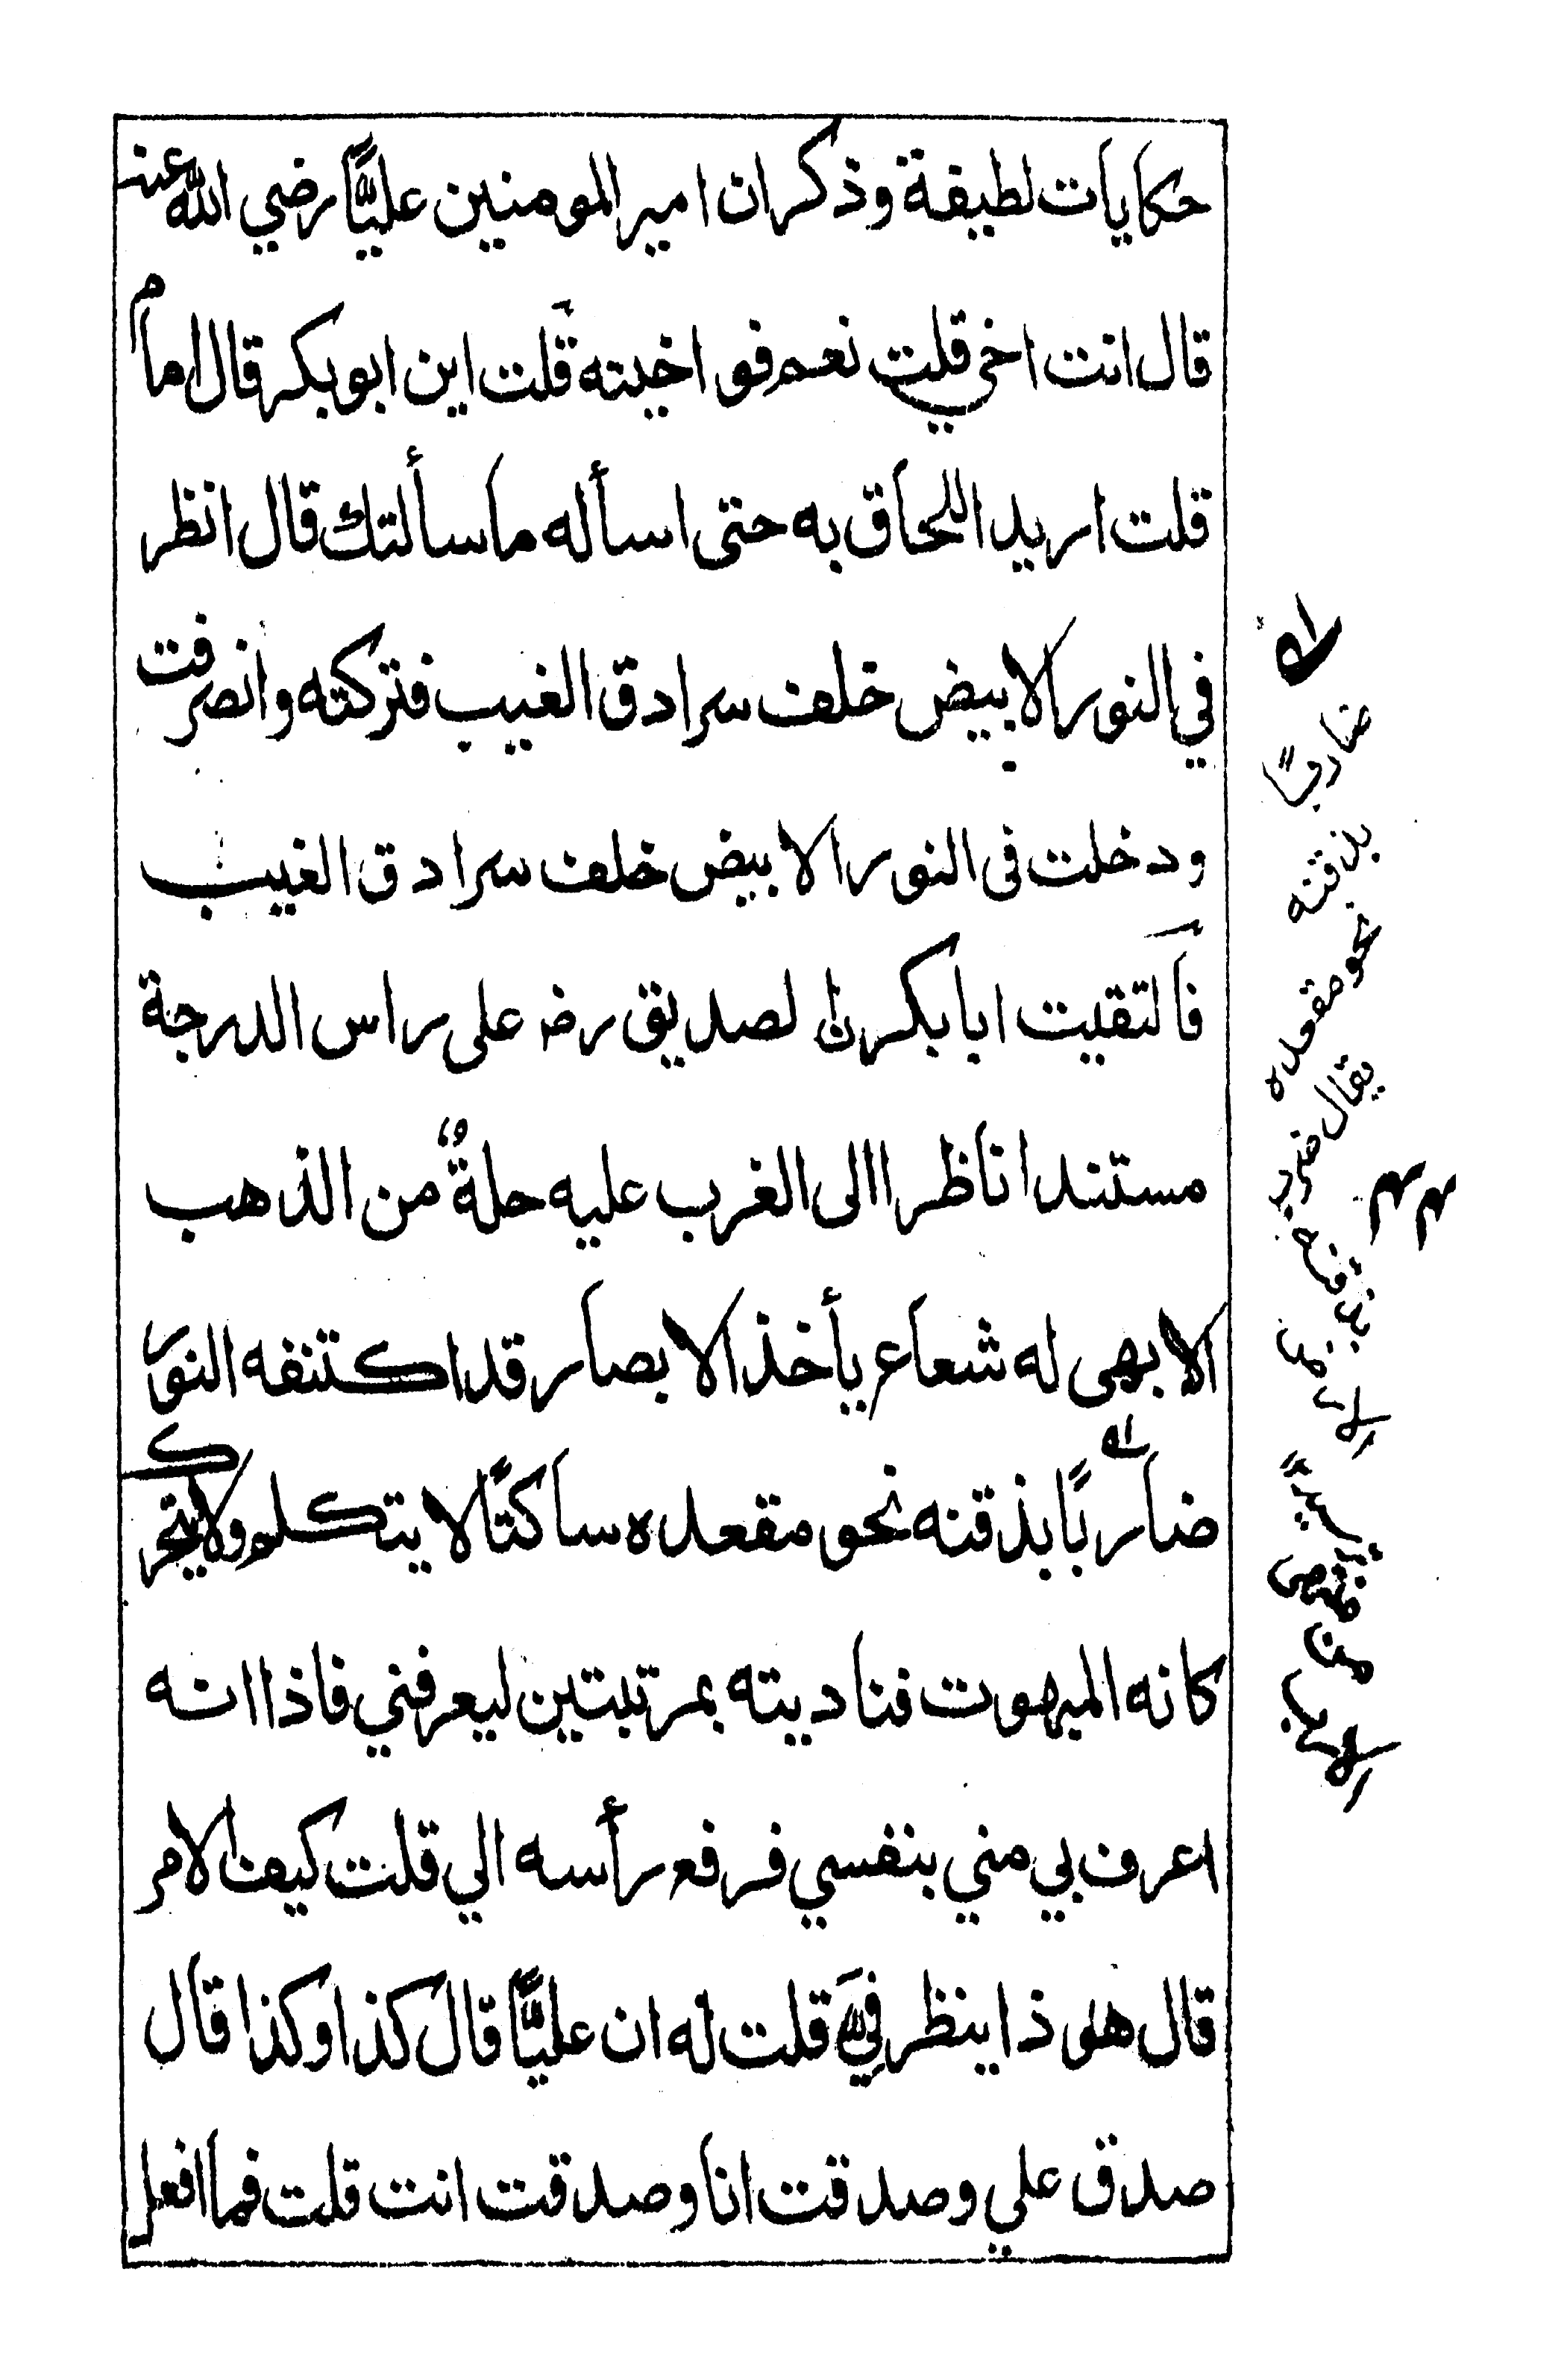 حكايات لطيفة وذكر ان امير المومنين عليًّا رضي الله عنه
قال انت اخي قلت نعم فواخيته قلت اين ابو بكر قال امام
قلت اريد اللحاق به حتى اسأله ما سألتك قال انظر
في النور الابيض خلف سرادق الغيب فتركته وانصرفت
ودخلت فى النور الابيض خلف سرادق الغيب
فالتقيت ابا بكر ن لصديق رضہ على راس الدرجة
مستندا ناظرا الى الغرب عليه حلةٌ من الذهب
الابهى له شعاع يأخذ الابصار قد اكتنفه النور
ضاربًا بذقنه نحو مقعده ساكتًا لا يتكلم ولا يتحرك
كانه المبهوت فناديته بمرتبتين ليعرفني فاذا انه
اعرف بي مني بنفسي فرفع رأسه الي قلت كيف الامر
قال هو ذا ينظر فيَّ قلت له ان عليًّا قال كذا وكذا قال
صدق علي وصدقت انا وصدقت انت قلت فما افعل
ضاربًا
بذقنه
نحو مقعده
يقال ضرب
بذقنه